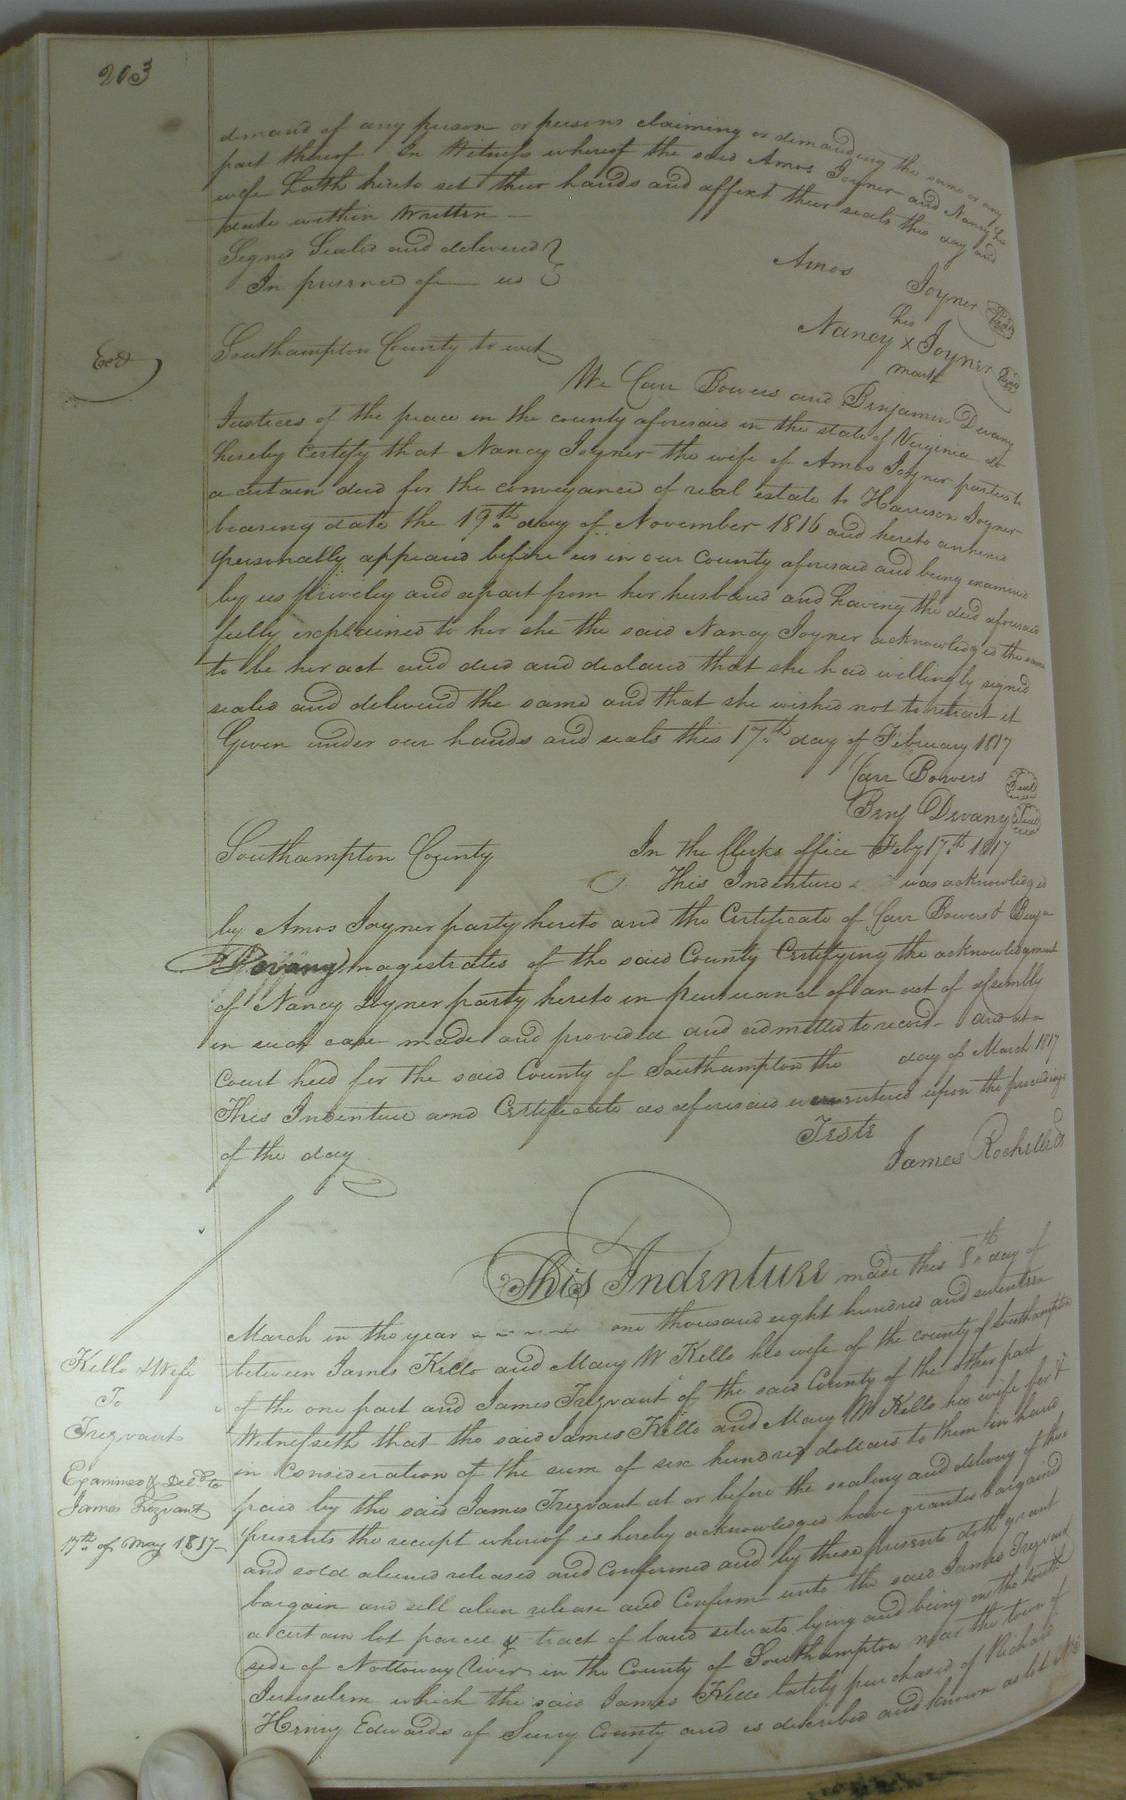 203
demand of any person or persons claiming or demanding the same or any
part thereof In Witness whereof the said Amos Joyner and Nancy his
wife hath hereto set their hands and affixt their seals this day and
date within Written
Signed Sealed and delivered
In presence of us
Amos Joyner Seal
his
Nancy x Joyner Seal
mark
Southampton County to wit
We Carr Bowers and Benjamin Devany
Justices of the peace in the county aforesaid in the state of Virginia do
hereby Certify that Nancy Joyner the wife of Amos Joyner parties to
a certain deed for the conveyance of real estate to Harrison Joyner
bearing date the 19th day of November 1816 and hereto annexed
personally appeared before us in our County aforesaid and being examined
by us priveley and apart from her husband and having the deed aforesaid
fully explained to her she the said Nancy Joyner acknowledged the same
to be her act and deed and declared that she had willingly signed
sealed and delivered the same and that she wished not to retract it
Given under our hands and seals this 17th day of February 1817
Carr Bowers Seal
Benj Devany Seal
Southampton County In the Clerks office Feby 17th 1817
This Indenture was acknowledged
by Amos Joyner party hereto and the Certificate of Carr Bowers & Benja
Devany magistrates of the said County Certifying the acknowledgment
of Nancy Joyner party hereto in pursuance of an act of assembly
in such case made and provided and admitted to record and at a
Court held for the said County of Southampton the day of March 1817
This Indenture and Certificate as aforesaid entered upon the proceedings
of the day
Teste
James Rochelle
This Indenture made this 8th day of
March in the year one thousand eight hundred and seventeen
between James Kello and Mary W Kello his wife of the county of Southampton
of the one part and James Trezvant of the said County of the other part
Witnesseth that the said James Kello and Mary W Kello his wife for &
in Consideration of the sum of six hundred dollars to them in hand
paid by the said James Trezvant at or before the sealing and delivery of these
presents the receipt whereof is hereby acknowledged have granted bargained
and sold aliened released and Confirmed and by these presents doth grant
bargain and sell alien release and Confirm unto the said James Trezvant
a certain lot parcel & tract of land situate lying and being on the south
side of Nottoway River in the County of Southampton near the town of
Jerusalem which the said James Kello lately purchased of Richard
Henry Edwards of Surry County and is described and known as lot No
Kello & Wife
To
Trezvant
Examined & Deld to
James Trezvant
17th of May 1817